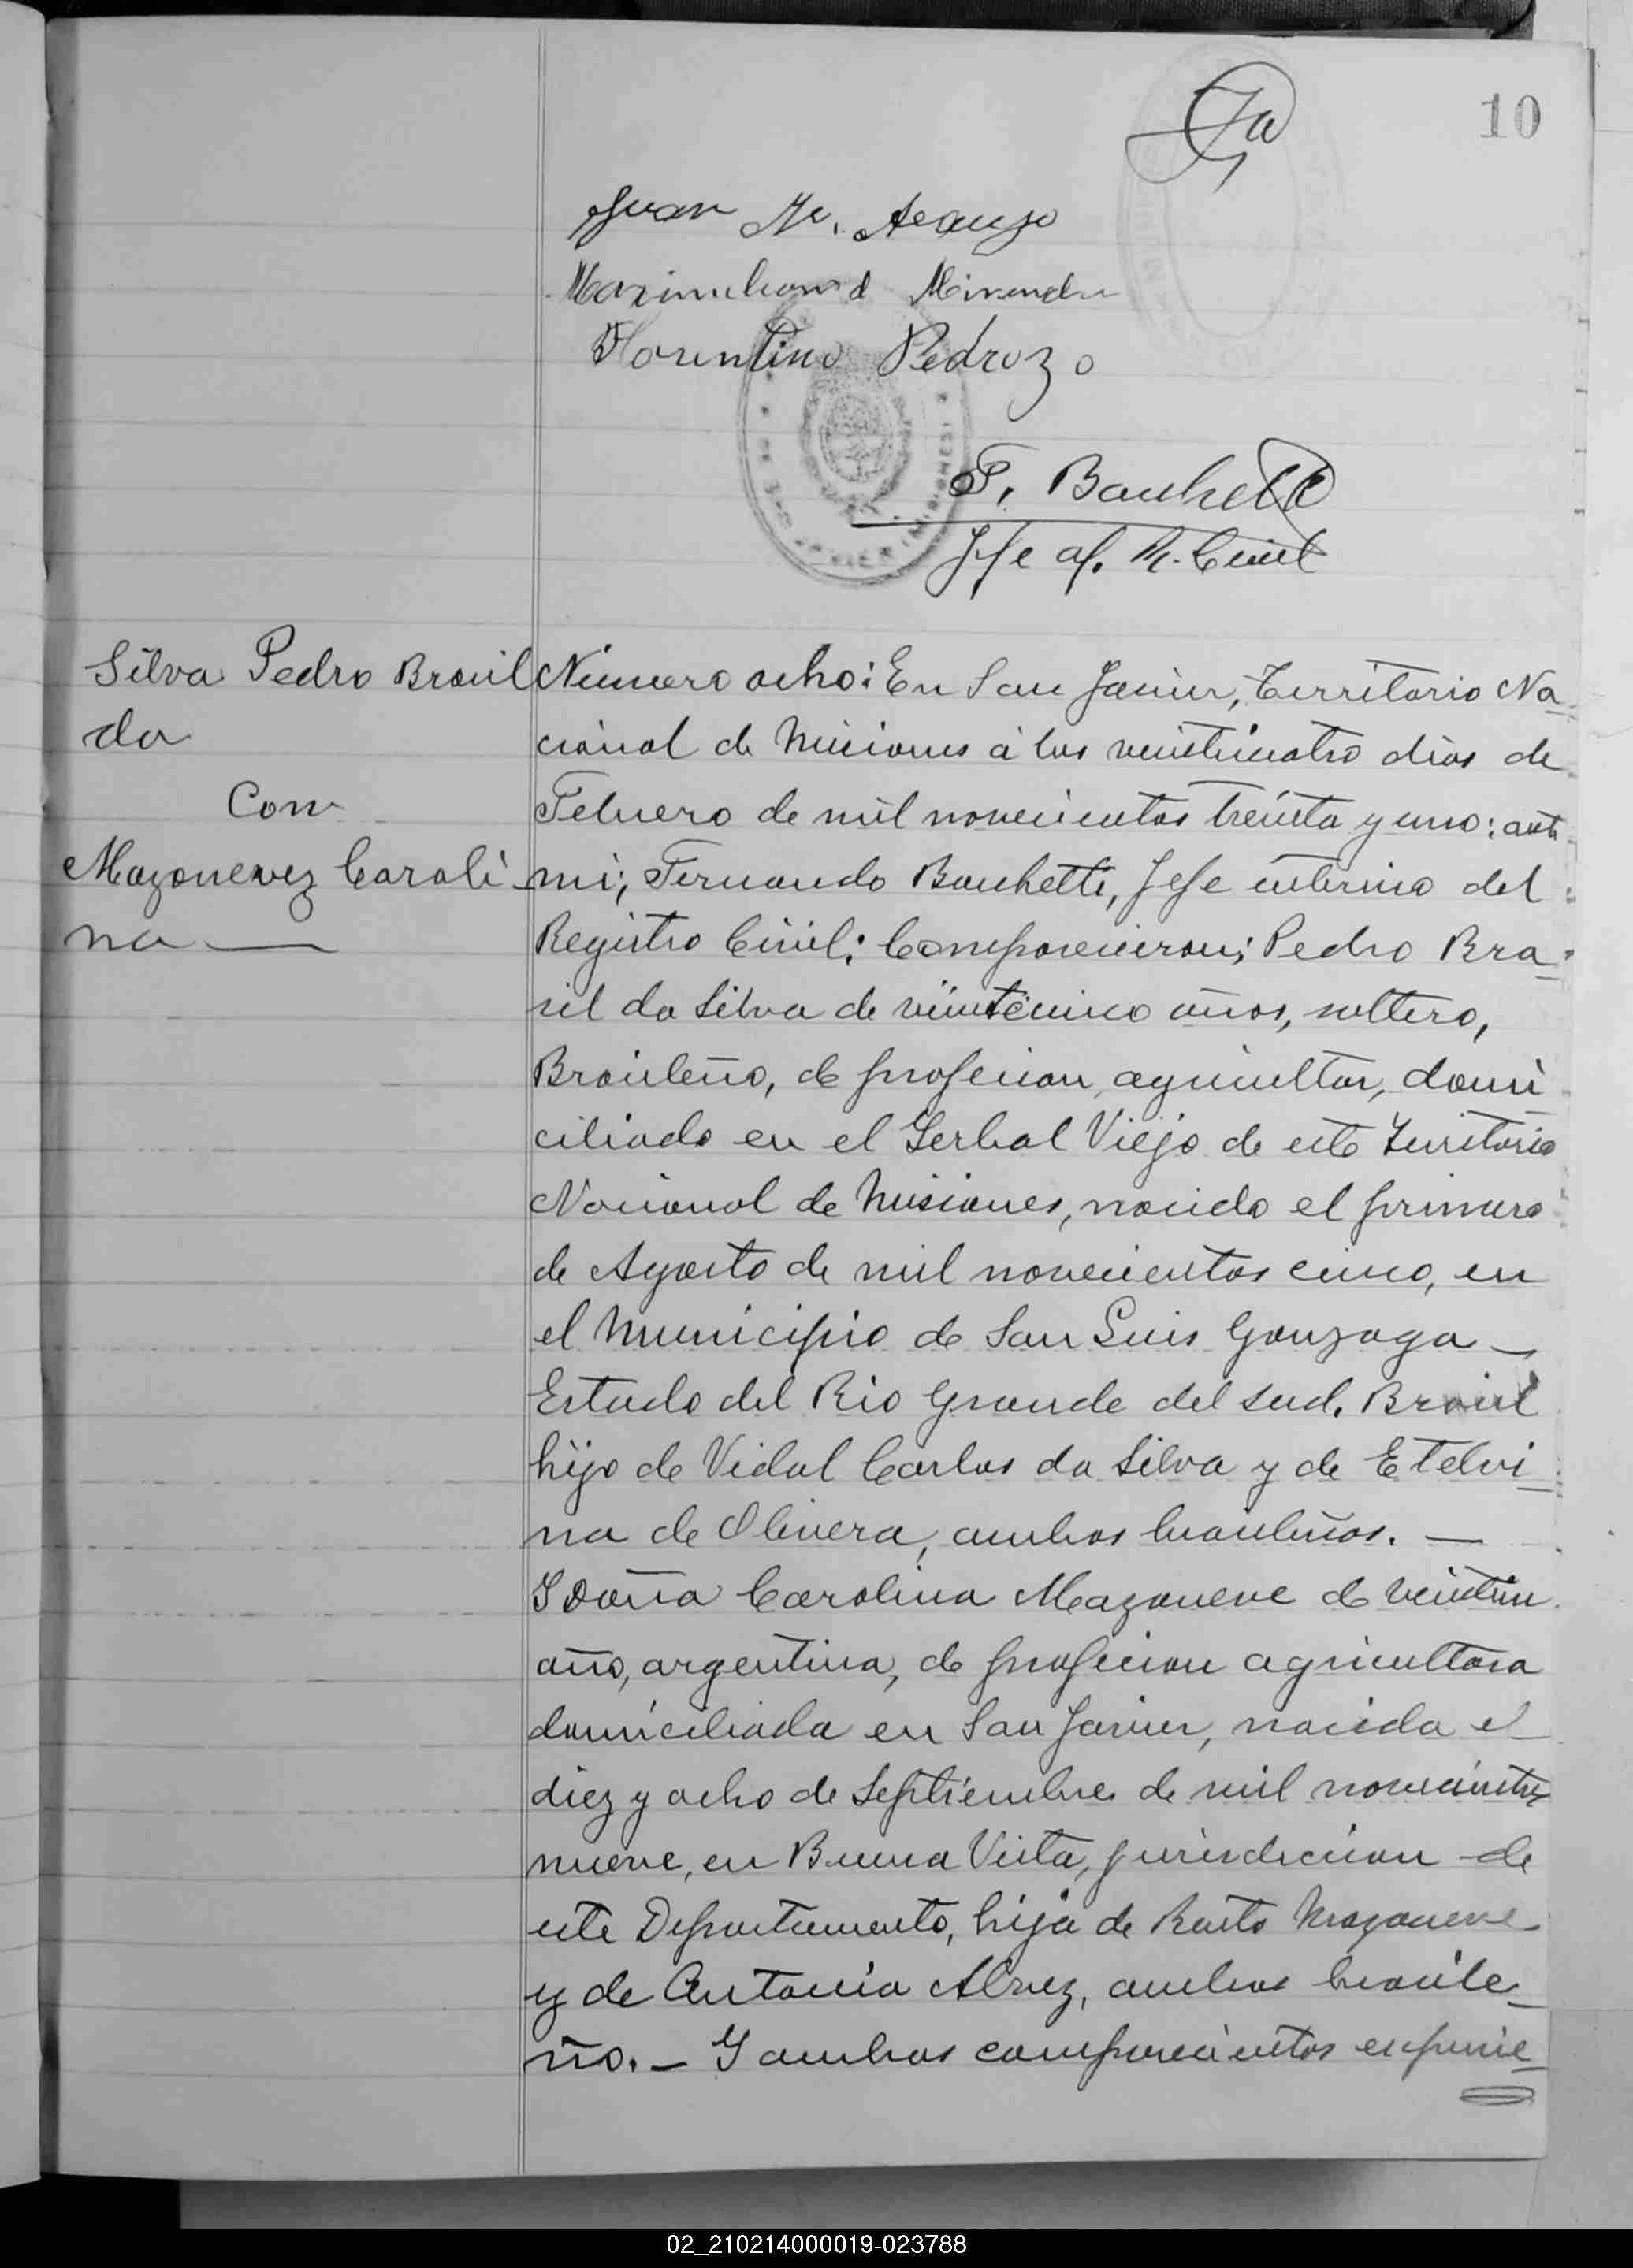 10
Juan M. Araujo
Maximiliano d Miranda
Florentino Pedrozo
F. Bauhette
Jefe af. R. Civil
Silva Pedro Brasil
da
Con
Mazonevez Caroli-
na
Número ocho: En San Javier, Territorio Na-
cional de Misiones á los veinticuatro dias de
Febrero de mil novecientos treinta y uno: ante
mi; Fernando Bauhette, Jefe interino del
Registro Civil; Comparecieron; Pedro Bra-
sil da Silva de veinticinco años, soltero,
Brasileño, de profesion, agricultor, domi-
ciliado en el Yerbal Viejo de este Territorio
Nacional de Misiones, nacido el primero
de Agosto de mil novecientos cinco, en
el Municipio de San Luis Gonzaga -
Estado del Rio Grande del Sud. Brasil
hijo de Vidal Carlos da Silva y de Etelvi-
na de Olivera, ambos brasileños. -
Y Doña Carolina Mazoneve de veintiun
año, argentina, de profesion agricultora
domiciliada en San Javier, nacida el
diez y ocho de Septiembre de mil novecientos
nueve, en Buena Vista, jurisdiccion de
este Departamento, hija de Mazoneve
y de Antonia Alvez, ambos brasile-
ño. - Y ambos comparecientes expusie-
02_210214000019-023788